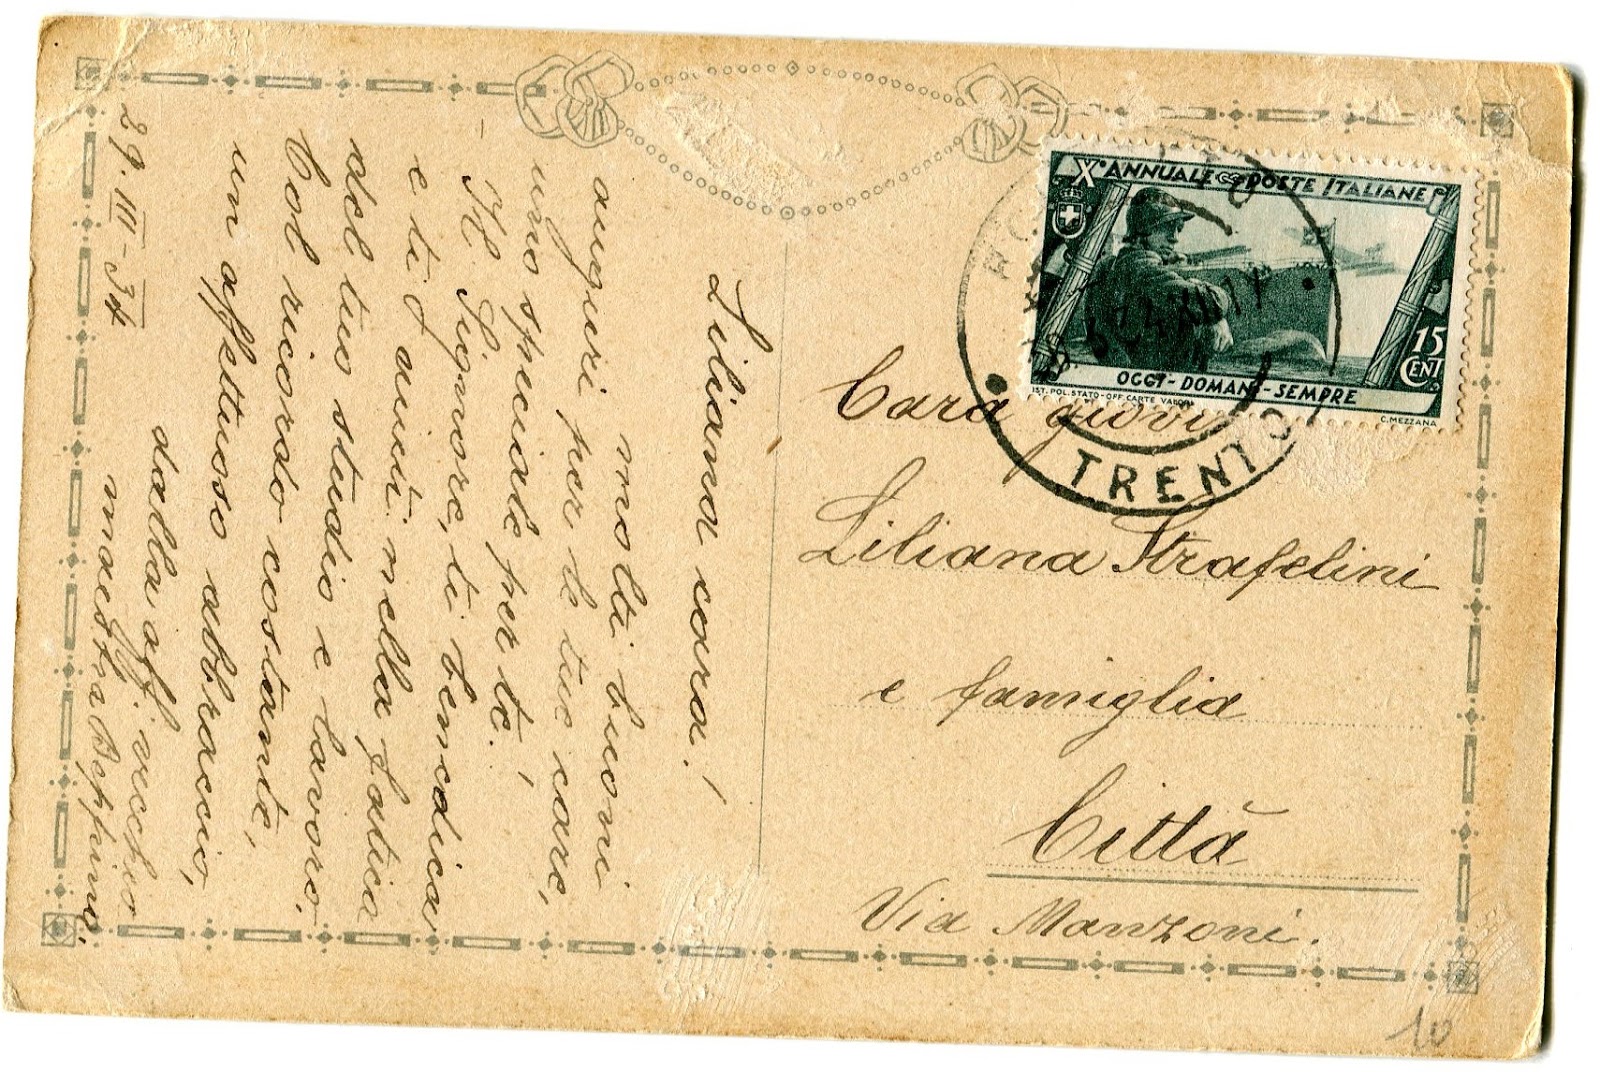 29. III - 34
Liliana cara!
molti buoni
auguri per le tue care,
uno speciale per te!
- Il Signore, ti benedica
e ti aiuti nella fatica
del tuo studio e lavoro.
Col ricordo costante,
un affettuoso abbraccio,
dalla aff. vecchia
maestra Beppina.
X° ANNUALE POSTE ITALIANE
15 CENT.
OGGI - DOMANI - SEMPRE
IST. POL. STATO - OFF. CARTE VALORI
C. MEZZANA
TRENTO
Cara
Liliana Strafelini
e famiglia
Città
Via Manzoni.
10